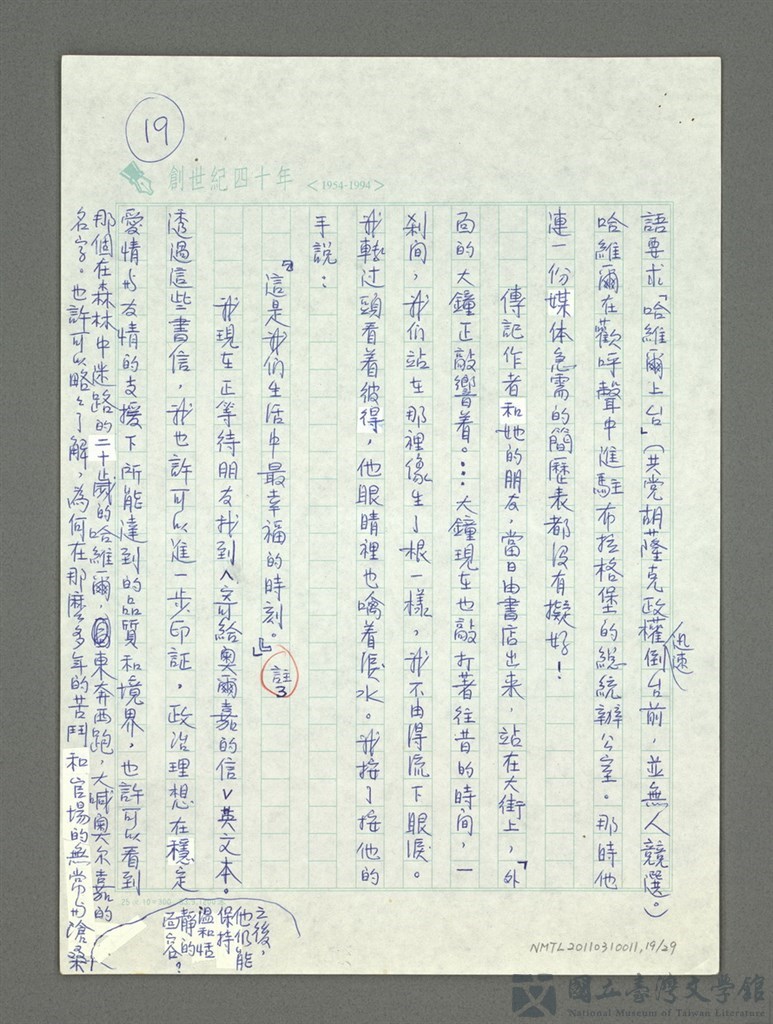 19
創世紀四十年 <1954-1994>
語要求「哈維爾上台」（共党胡薩克政權迅速倒台前，並無人競選。）
哈維爾在歡呼聲中進駐布拉格堡的總統辦公室。那時他
連一份媒体急需的簡歷表都没有擬好！
傳記作者和她的朋友，當日由書店出来，站在大街上，「外
面的大鐘正敲響着。……大鐘現在也敲打著往昔的時间，一
刹间，我们站在那裡像生了根一樣，我不由得流下眼淚。
我轉过頭看着彼得，他眼睛裡也噙着淚水。我按了按他的
手說：
『這是我们生活中最幸福的時刻。』」註3
我現在正等待朋友找到<寄給奥爾嘉的信>英文本。
透過這些書信，我也許可以進一步印証，政治理想在穩定
愛情与友情的支援下所能達到的品質和境界，也許可以看到
那個在森林中迷路的二十歲的哈維爾，東奔西跑，大喊奥尔嘉的
名字。也許可以略々了解，為何在那麼多年的苦鬥和官場的無常与滄桑
之後，
他仍能
保持
温和恬
靜的
面容？
25×12=300
NMTL20110310011,19/29
國立臺灣文學館
National Museum of Taiwan Literature